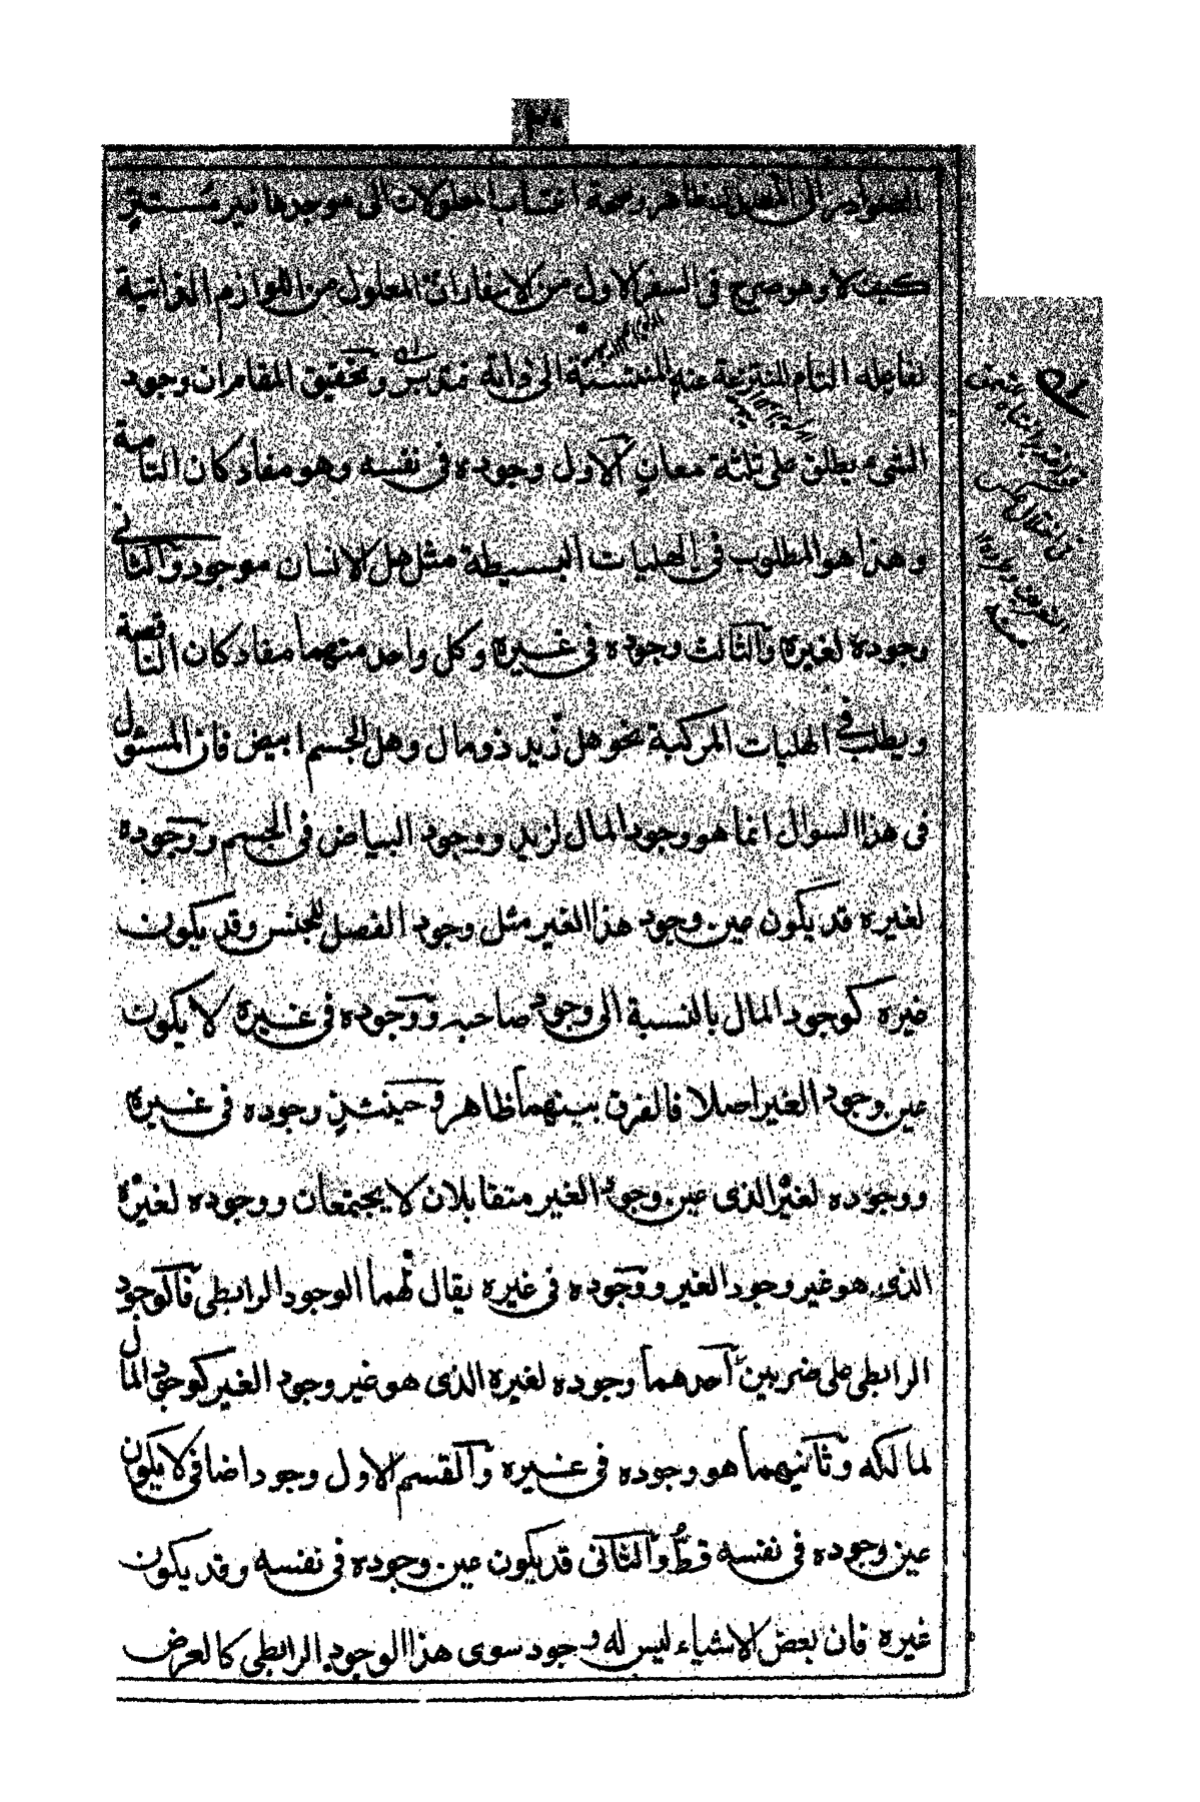 ٢٠
الى ظاهر وصحة انتساب المعلولات الى موجدها غير مستتر
كيف لا وهو صرح فى السفر الاول من الاسفار ان المعلول من اللوازم
لفاعله التام المنتزعة عنه المنتسبة الى ذاته فتدبر وتحقيق المقام ان وجود
الشىء يطلق على ثلثة معان الاول وجوده فى نفسه وهو مفاد كان التامة
وهذا هو المطلوب فى الهليات البسيطة مثل هل الانسان موجود والثانى
وجوده لغيره والثالث وجوده فى غيره وكل واحد منهما مفاد كان الناقصة
ويطلب فى الهليات المركبة نحو هل زيد ذو مال وهل الجسم ابيض فان المسئول
فى هذا السوال انما هو وجود المال لزيد ووجود البياض فى الجسم ووجوده
لغيره قد يكون عين وجود هذا الغير مثل وجود الفصل للجنس وقد يكون
غيره كوجود المال بالنسبة الى وجود صاحبه ووجوده فى غيره لا يكون
عين وجود الغير اصلا فالفرق بينهما ظاهر وحينئذ وجوده فى غيره
ووجوده لغيره الذى عين وجود الغير متقابلان لا يجتمعان ووجوده لغيره
الذى هو غير وجود الغير ووجوده فى غيره يقال لهما الوجود الرابطى فالوجود
الرابطى على ضربين احدهما وجوده لغيره الذى هو غير وجود الغير كوجود المال
لمالكه وثانيهما هو وجوده فى غيره والقسم الاول وجود اضافى لا يكون
عين وجوده فى نفسه قط والثانى قد يكون عين وجوده فى نفسه وقد يكون
غيره فان بعض الاشياء ليس له وجود سوى هذا الوجود الرابطى كالعرض